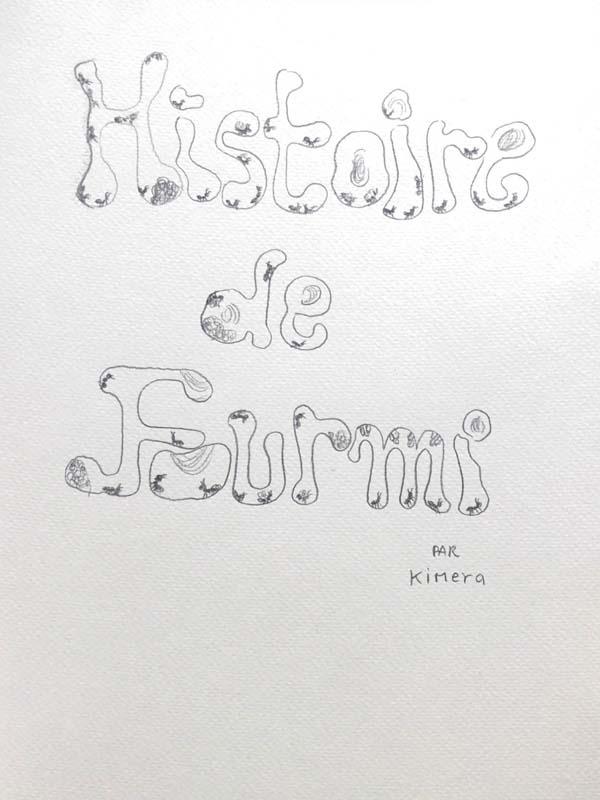 Histoire
de
Fourmi
PAR
Kimera